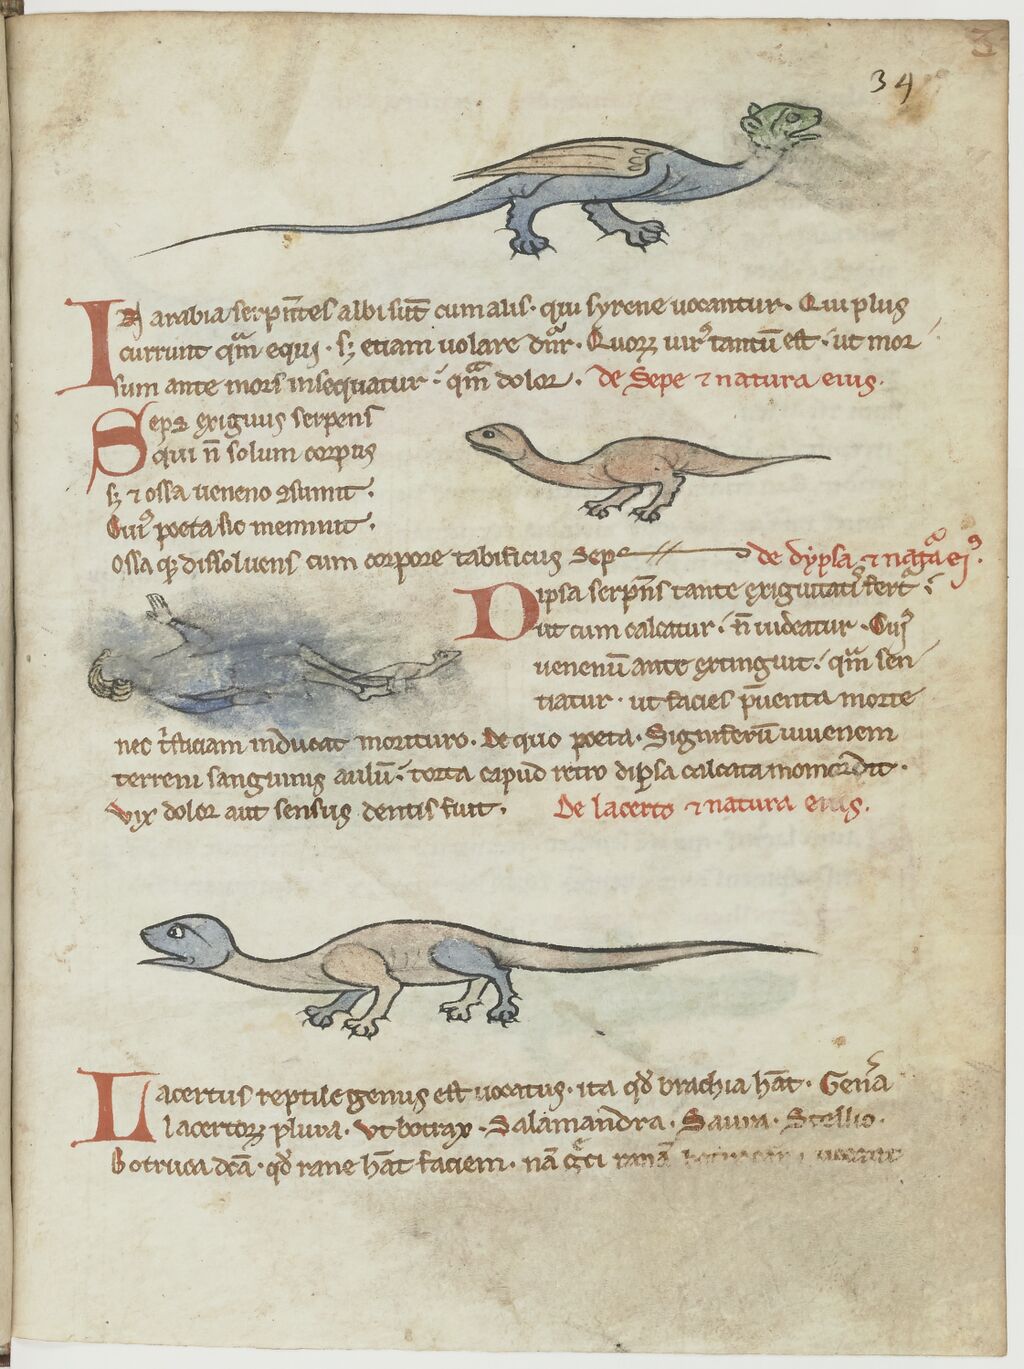 34
In arabia serpn̄tes albi sūt cum alis · qui syrene uocantur. Qui plus
currunt qͣm equi · sȝ etiam uolare dn̄r. Quorꝝ uirꝰ tantū est · ut mor
sum ante mors insequatur · qͣm dolor. De Sepe ⁊ natura eius.
Seps exiguus serpens
qui n̄ solum corpus
sȝ ⁊ ossa ueneno ꝯsumit.
Cuiꝰ poeta sic meminit.
Ossa qꝫ dissoluens cum corpore tabificus seps de dypsa ⁊ nat͛a eiꝰ.
Dipsa serpn̄s tante exiguitatis fert͛
ut cum calcatur · n̄ uideatur. Cuiꝰ
uenenū ante extinguit · qͣm sen
tiatur · ut facies p̄uenta morte
nec t̄sticiam inducat morituro. De quo poeta. Signiferū iuuenem
terreni sanguinis aulū · torta capud retro dipsa calcata momordit.
Vix dolor aut sensus dentis fuit. De lacerto ⁊ natura eius.
Lacertus reptile genus est uocatus · ita qd̄ brachia hāt. Gen̄a
lacertorꝝ plura. Vt botrax. Salamandra. Saura. Stellio.
Botruca dc̄a · qd̄ rane hāt faciem. nā gͤci ranā uocant